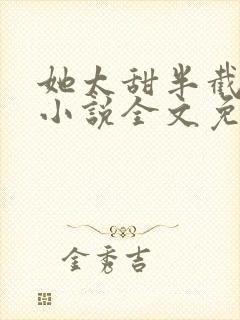 她太甜半截
小説全文免
金秀吉